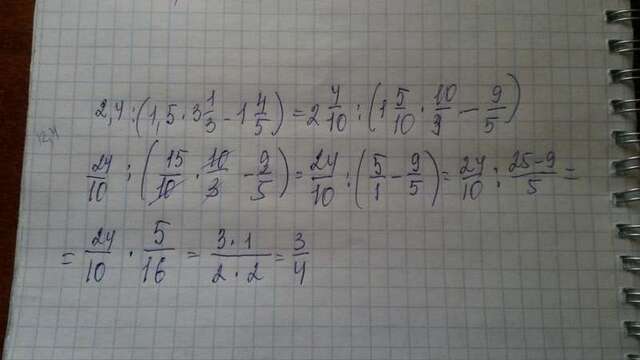 2,4:(1,5·3 1/3-1 4/5)=2 4/10:(1 5/10·10/3-9/5)
24/10:(15/10·10/3-9/5)=24/10:(5/1-9/5)=24/10:25-9/5=
=24/10·5/16=3·1/2·2=3/4